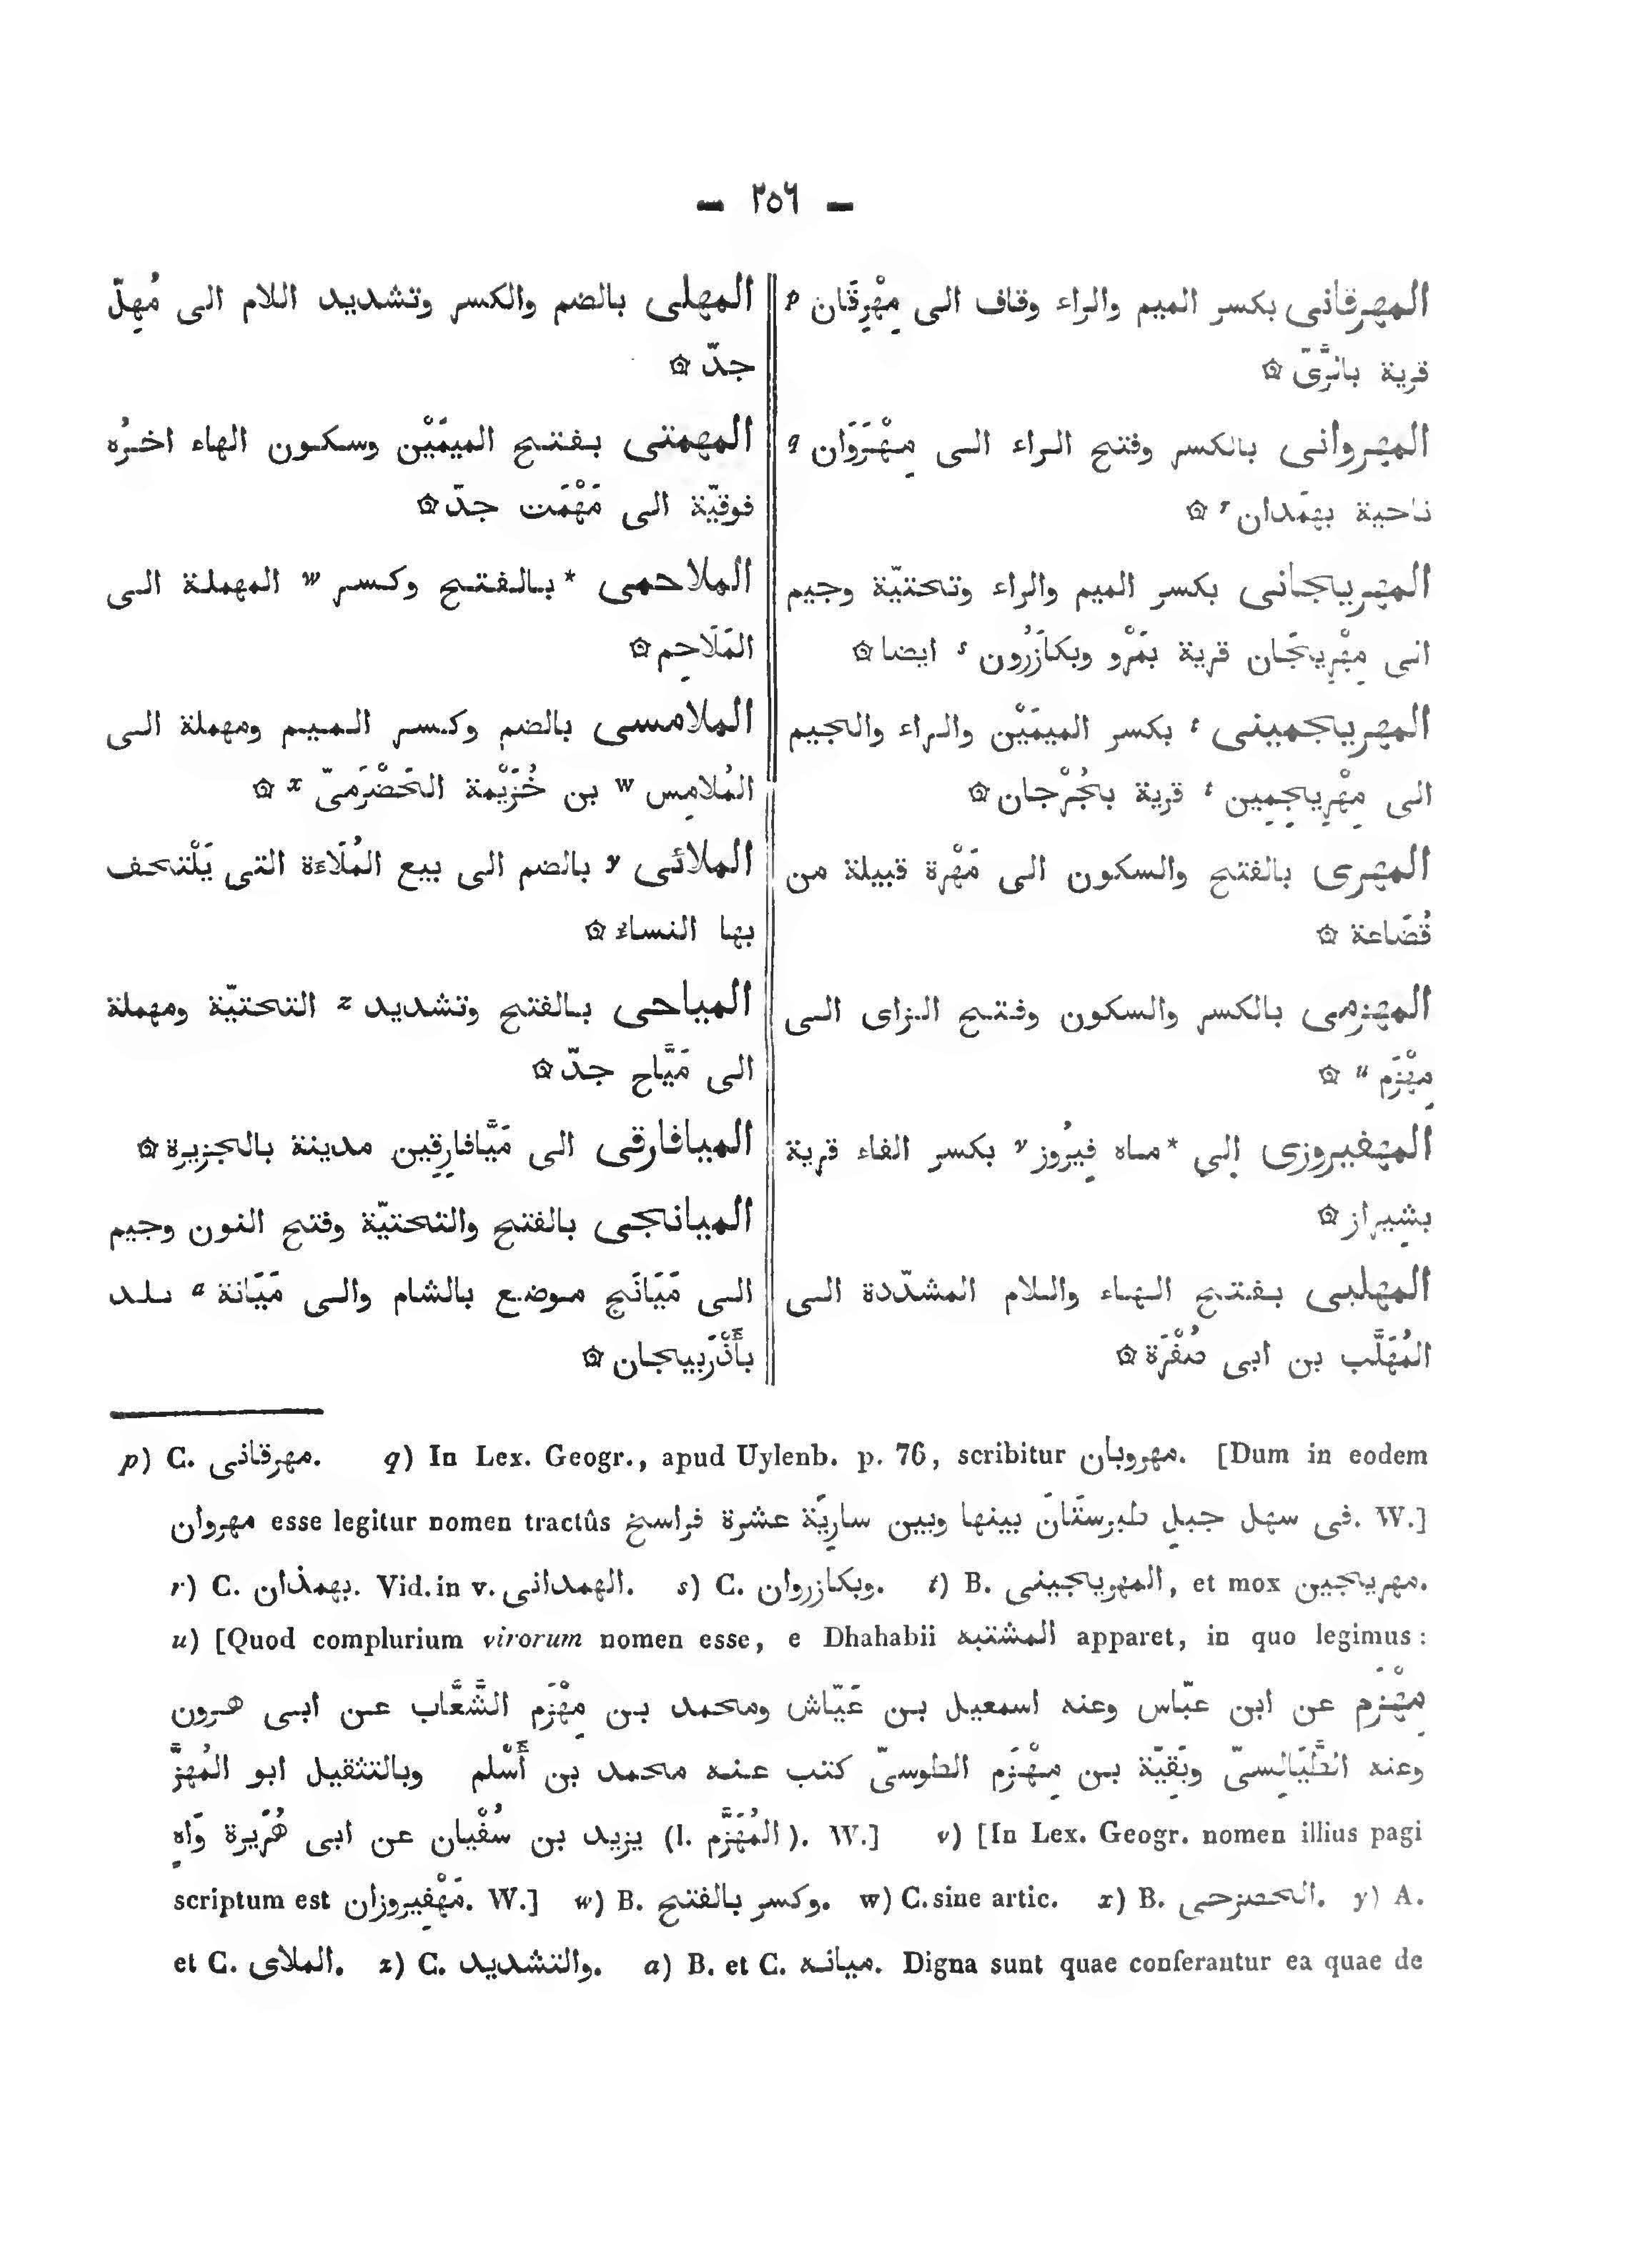 — ٢٥٦ —
المهرقانى بكسر الميم والراء وقاف الى مِهْرِقَان p
قرية بالرَّىّ ۞
المهروانى بالكسر وفتح الراء الى مِهْرَوَان q
ناحية بهمَدان r ۞
المهريجانى بكسر الميم والراء وتحتيّة وجيم
الى مِهْرِيجَان قرية بمَرْو وبكازَرُون s ايضا ۞
المهريجمينى t بكسر الميمَيْن والراء والجيم
الى مِهْرِيجِمِين t قرية بجُرْجان ۞
المهرى بالفتح والسكون الى مَهْرة قبيلة من
قُضَاعة ۞
المهزمى بالكسر والسكون وفتح الزاى الى
مِهْزَم u ۞
المهفيروزى الى *ماه فِيرُوز v بكسر الفاء قرية
بشِيراز ۞
المهلبى بفتح الهاء واللام المشدّدة الى
المُهَلَّب بن ابى صُفْرَة ۞
المهلى بالضم والكسر وتشديد اللام الى مُهِلّ
جدّ ۞
المهمتى بفتح الميمَيْن وسكون الهاء اخرُه
فوقيّة الى مَهْمَت جدّ ۞
الملاحمى *بالفتح وكسر w المهملة الى
المَلَاحِم ۞
الملامسى بالضم وكسر الميم ومهملة الى
المُلامِس w بن خُزَيْمة الحَضْرَمىّ x ۞
الملائى y بالضم الى بيع المُلَاءَة التى يَلْتحف
بها النساء ۞
المياحى بالفتح وتشديد z التحتيّة ومهملة
الى مَيَّاح جدّ ۞
الميافارقى الى مَيَّافارِقِين مدينة بالجزيرة ۞
الميانجى بالفتح والتحتيّة وفتح النون وجيم
الى مَيَانَج موضع بالشام والى مَيَانة a بلد
بأَذْرَبيجان ۞
p) C. مهرقاذى. q) In Lex. Geogr., apud Uylenb. p. 76, scribitur مهروبان. [Dum in eodem
مهروان esse legitur nomen tractûs فى سهل جبل طبرستَانَ بينها وبين سارِيَة عشرة فراسخ. W.]
r) C. بهمذان. Vid. in v. الهمدانى. s) C. وبكازروان. t) B. المهريجينى, et mox مهريجين.
u) [Quod complurium virorum nomen esse, e Dhahabii المشتبه apparet, in quo legimus:
مِهْزَم عن ابن عبّاس وعنه اسمعيل بن عَيّاش ومحمد بن مِهْزَم الشَّعَّاب عن ابى هرون
وعنه الطَّيَالِسىّ وبَقِيّة بن مِهْزَم الطوسىّ كتب عنه محمد بن أَسْلم وبالتثقيل ابو المُهزَّ
(l. المُهَزَّم) يزيد بن سُفْيان عن ابى هُرَيرة وَاهٍ. W.] v) [In Lex. Geogr. nomen illius pagi
scriptum est مَهْفِيروزان. W.] w) B. وكسر بالفتح. w) C. sine artic. x) B. الحصزحى. y) A.
et C. الملاى. z) C. والتشديد. a) B. et C. ميانه. Digna sunt quae conferantur ea quae de